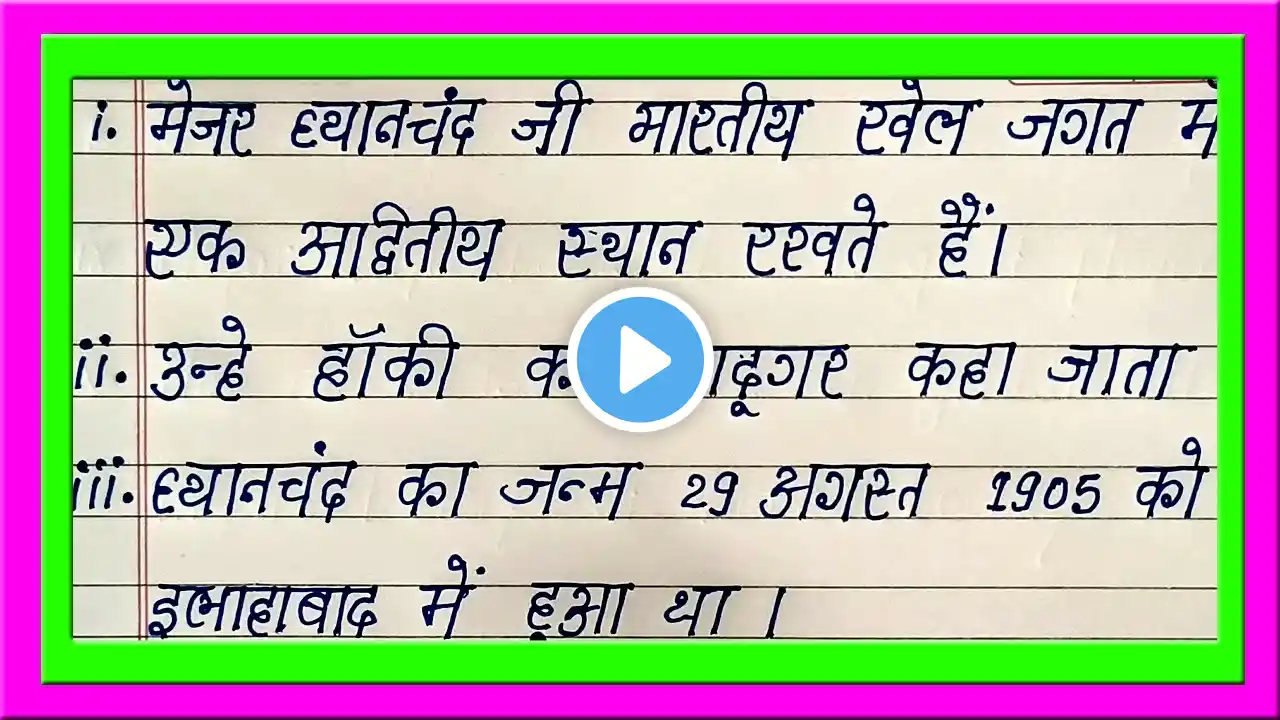 i. मेजर ध्यानचंद जी भारतीय खेल जगत में
एक आद्वितीय स्थान रखते हैं।
ii. उन्हे हॉकी कहा जाता
iii. ध्यानचंद का जन्म 29 अगस्त 1905 को
इलाहाबाद में हुआ था ।